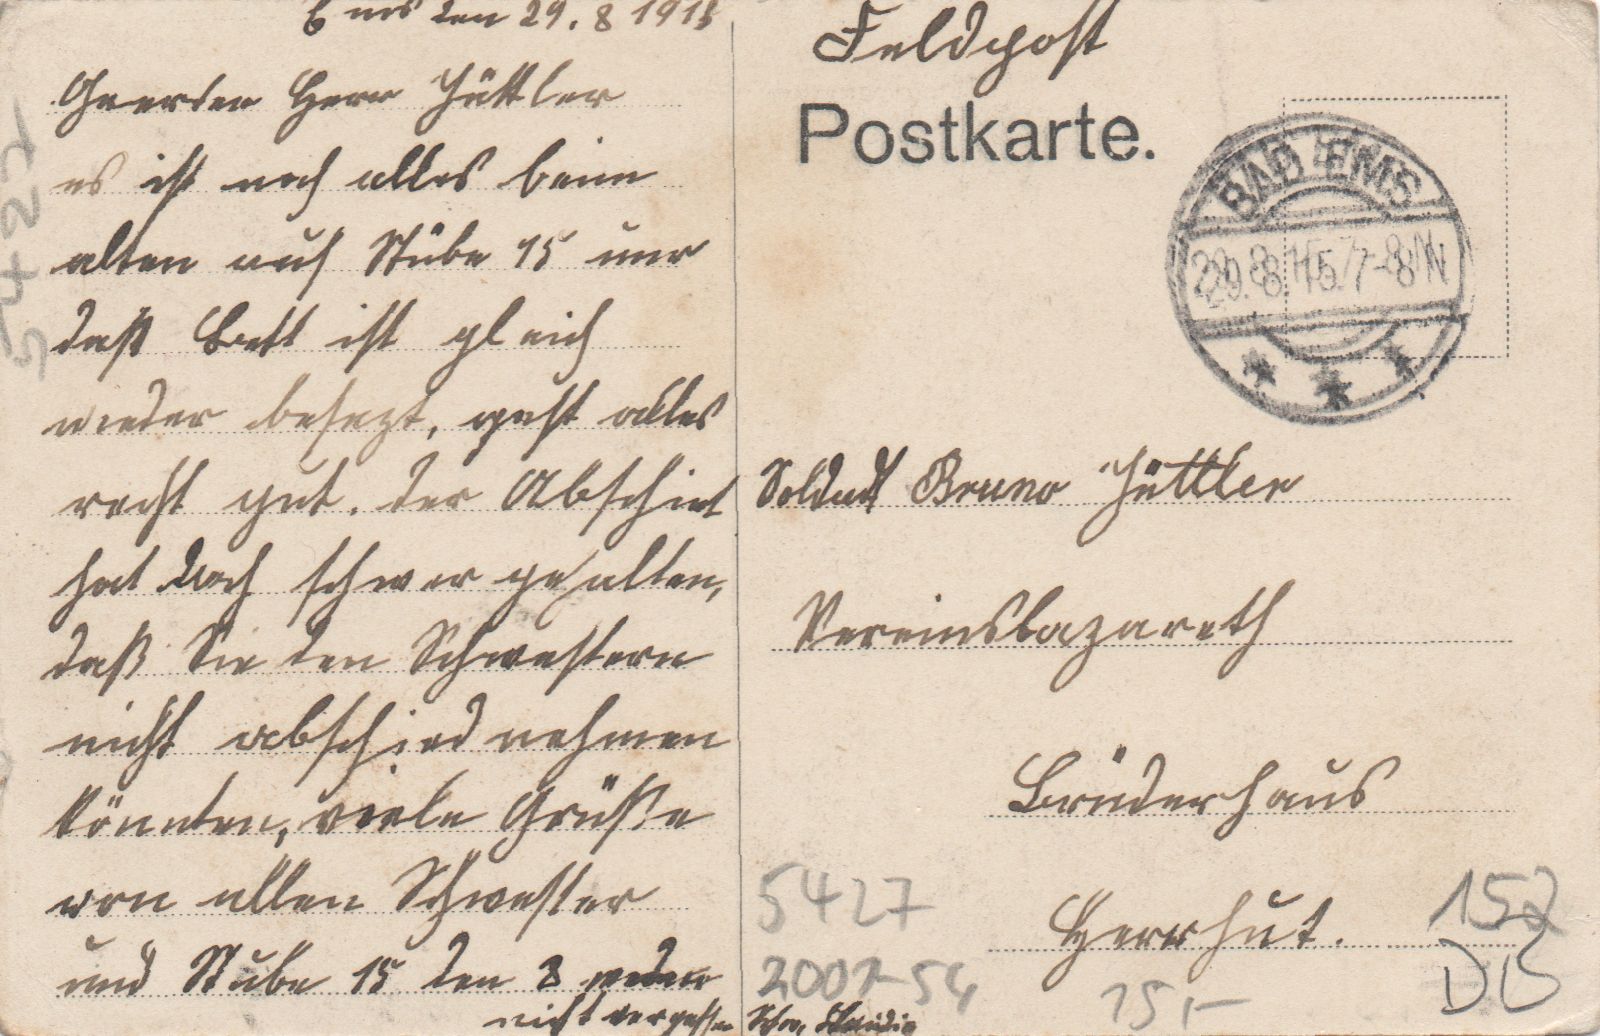 Ems den 29.8 1915
Gnerter Herr Hüttler
es ist noch alles beim
alten auf Stube 15 nur
daß Bett ist gleich
wieder besezt, geht alles
recht gut. der Abschiet
hat doch schwer gehalten,
daß Sie den Schwestern
nicht abschied nehmen
könnten, viele Grüße
von allen Schwester
und Stube 15 den 8
nicht vergessen Schw. Claudia
Feldpost
Postkarte.
BAD EMS
29.8.15.7-8N
Soldat Bruno Hüttler
Vereinslazareth
Brüderhaus
Herrnhut.
5427
5427
2007-54
15,-
152
DB